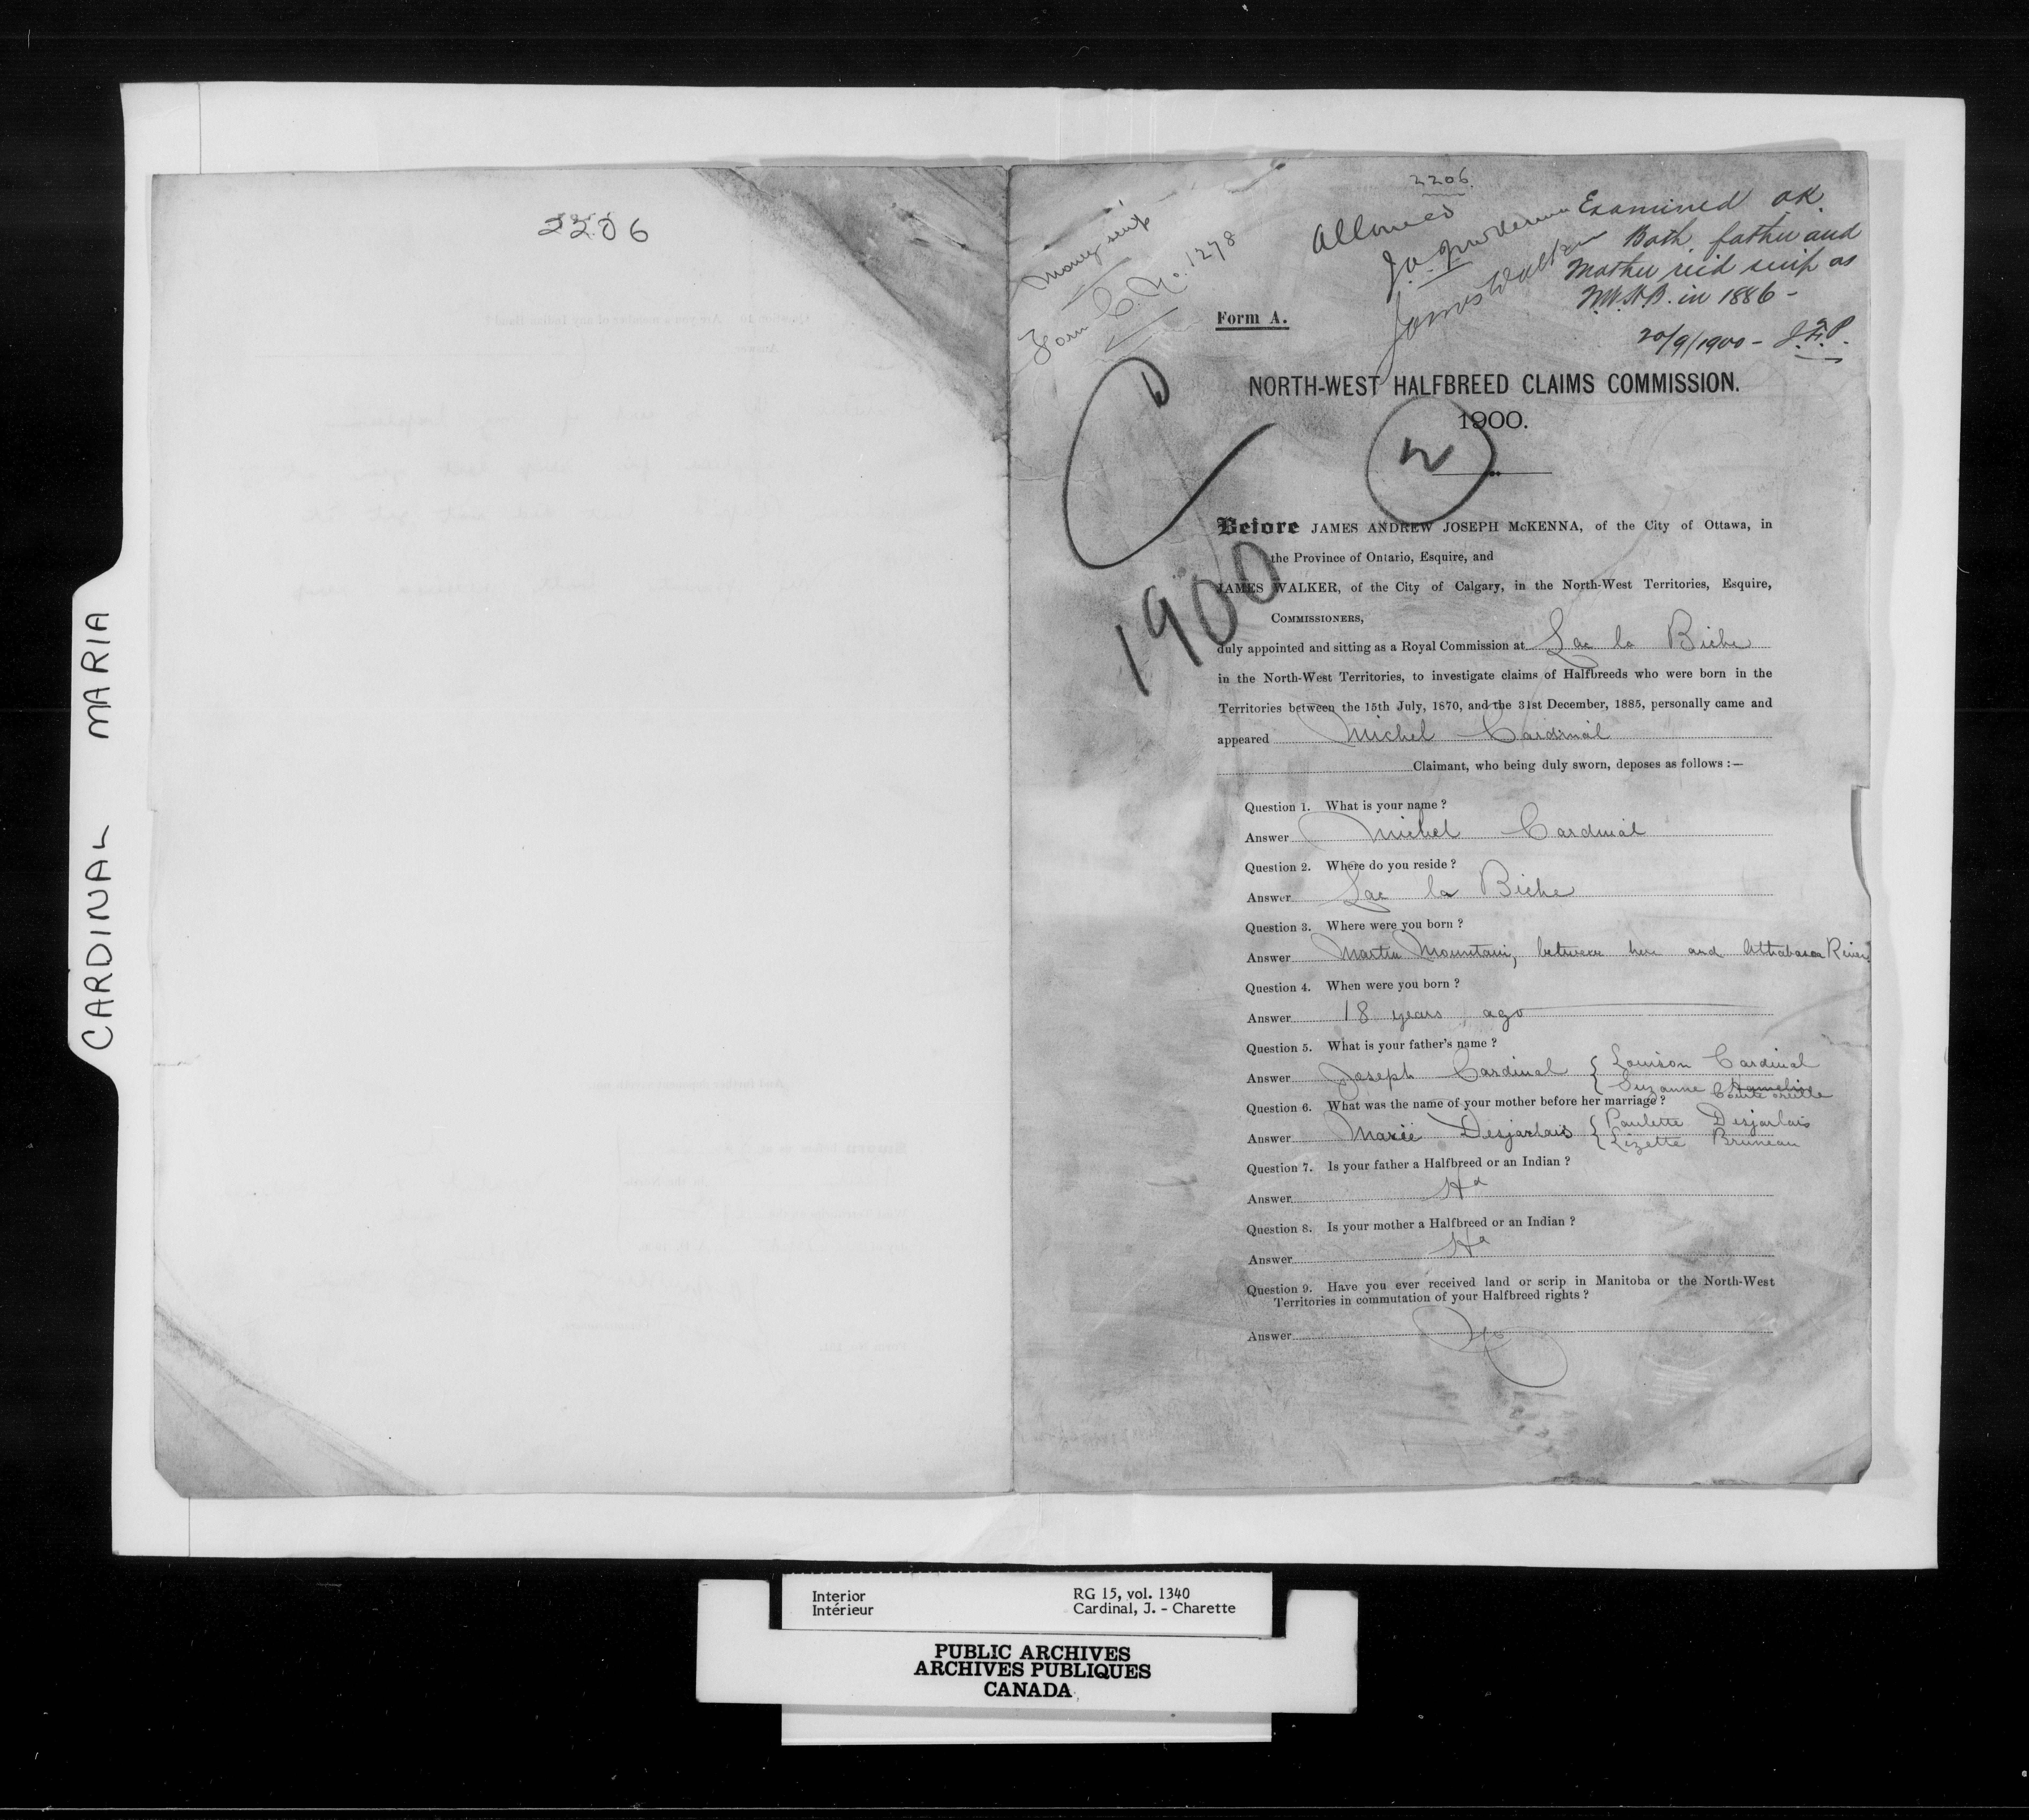 CARDINAL MARIA
2206
2206.
Money scrip
Form C. No. 1278
Allowed
J.A.J. McKenna
James Walker
Examined OK.
Both father and
Mother rec'd scrip as
N.W.H.B. in 1886 -
20/9/1900 -
Form A.
NORTH-WEST HALFBREED CLAIMS COMMISSION.
1900.
1900
Before JAMES ANDREW JOSEPH McKENNA, of the City of Ottawa, in
the Province of Ontario, Esquire, and
JAMES WALKER, of the City of Calgary, in the North-West Territories, Esquire,
COMMISSIONERS,
duly appointed and sitting as a Royal Commission at Lac la Biche
in the North-West Territories, to investigate claims of Halfbreeds who were born in the
Territories between the 15th July, 1870, and the 31st December, 1885, personally came and
appeared Michel Cardinal
Claimant, who being duly sworn, deposes as follows :—
Question 1. What is your name ?
Answer Michel Cardinal
Question 2. Where do you reside ?
Answer Lac la Biche
Question 3. Where were you born ?
Answer Martin Mountain, between here and Athabasca River
Question 4. When were you born ?
Answer 18 years ago
Question 5. What is your father's name ?
Answer Joseph Cardinal { Louison Cardinal
{ Suzanne Hamelin
Question 6. What was the name of your mother before her marriage ?
Answer Marie Desjarlais { Paulette Desjarlais
{ Lizette Bruneau
Question 7. Is your father a Halfbreed or an Indian ?
Answer Hd
Question 8. Is your mother a Halfbreed or an Indian ?
Answer Hd
Question 9. Have you ever received land or scrip in Manitoba or the North-West
Territories in commutation of your Halfbreed rights ?
Answer No
Interior RG 15, vol. 1340
Intérieur Cardinal, J. - Charette
PUBLIC ARCHIVES
ARCHIVES PUBLIQUES
CANADA